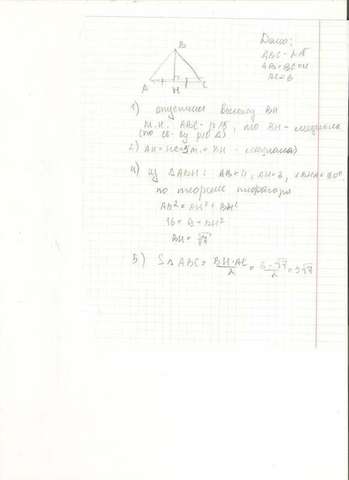 B
A
H
C
Дано:
ABC - р/б
AB=BC=4
AC=6
1) опустим высоту BH
т.к. ABC - р/б, то BH - медиана
(по св-ву р/б Δ)
2) AH=HC=3 (т.к. BH - медиана)
4) из ΔABH: AB=4, AH=3,
по теореме пифагора
AB²=AH²+BH²
16=9+BH²
BH=√7
5) S ABC = BH·AC/2 = 6·√7/2 = 3√7